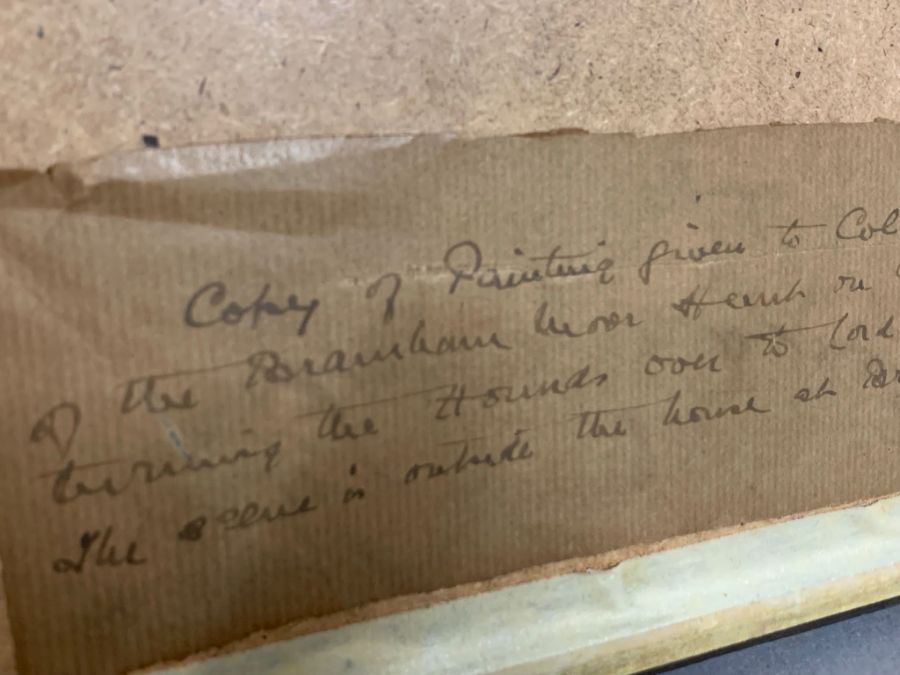 Copy of Painting given to Col
of the Bramham Moor Hunt on
turning the Hounds over to Lord
The scene is outside the house at Br